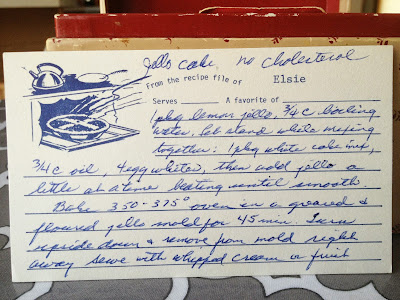 Jello cake, no cholesterol
From the recipe file of Elsie
Serves A favorite of
1 pkg lemon jello, 3/4 c boiling
water, let stand while mixing
together: 1 pkg white cake mix,
3/4 c oil, 4 egg whites, then add jello a
little at a time beating until smooth.
Bake 350-375° oven in a greased &
floured jello mold for 45 min. Turn
upside down & remove from mold right
away serve with whipped cream or fruit